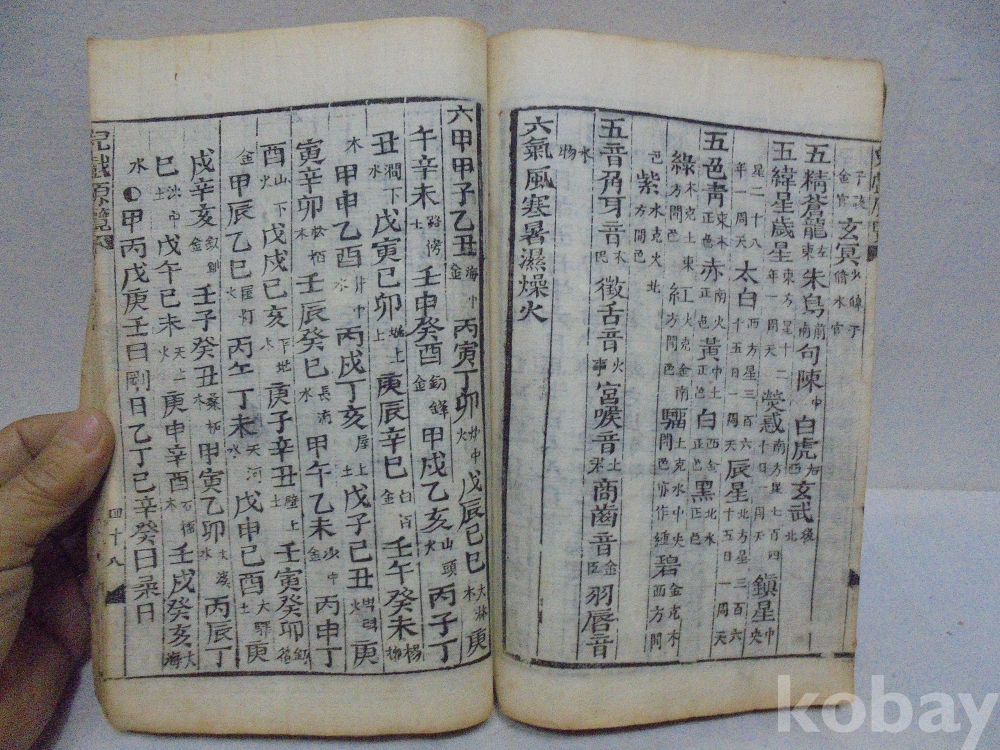 玄冥
五精蒼龍左東朱鳥前南句陳中白虎右西玄武後北
五緯星歲星東方星十二年一周天熒惑南方星七百四十日一周天鎭星中央
星二十八年一周天太白西方星三百六十五日一周天辰星北方星三百六十五日一周天
五色靑東木正色赤南火正色黃中土正色白西金正色黑北水正色
綠東方間色木克土紅南方間色火克金騮土克水中央間色亦作緟碧金克木西方間色
紫水克火北方間色
五音角牙音木民徵舌音火事宮喉音土君商齒音金臣羽唇音
水物
六氣風寒暑濕燥火
六甲甲子乙丑海中金丙寅丁卯炉中火戊辰己巳大淋木庚
午辛未路傍土壬申癸酉釼鋒金甲戌乙亥山頭火丙子丁
丑澗下水戊寅己卯城上土庚辰辛巳白金壬午癸未楊柳
木甲申乙酉井中水丙戌丁亥屋上土戊子己丑벽력火庚
寅辛卯松栢木壬辰癸巳長流水甲午乙未沙中金丙申丁
酉山下火戊戌己亥平地木庚子辛丑壁上土壬寅癸卯
金甲辰乙巳火丙午丁未天河水戊申己酉大驛土庚
戌辛亥釵釧金壬子癸丑桑柘木甲寅乙卯大溪水丙辰丁
巳沙中土戊午己未天上火庚申辛酉石榴木壬戌癸亥大海
水甲丙戊庚壬日剛日乙丁己辛癸日柔日
四十八
kobay